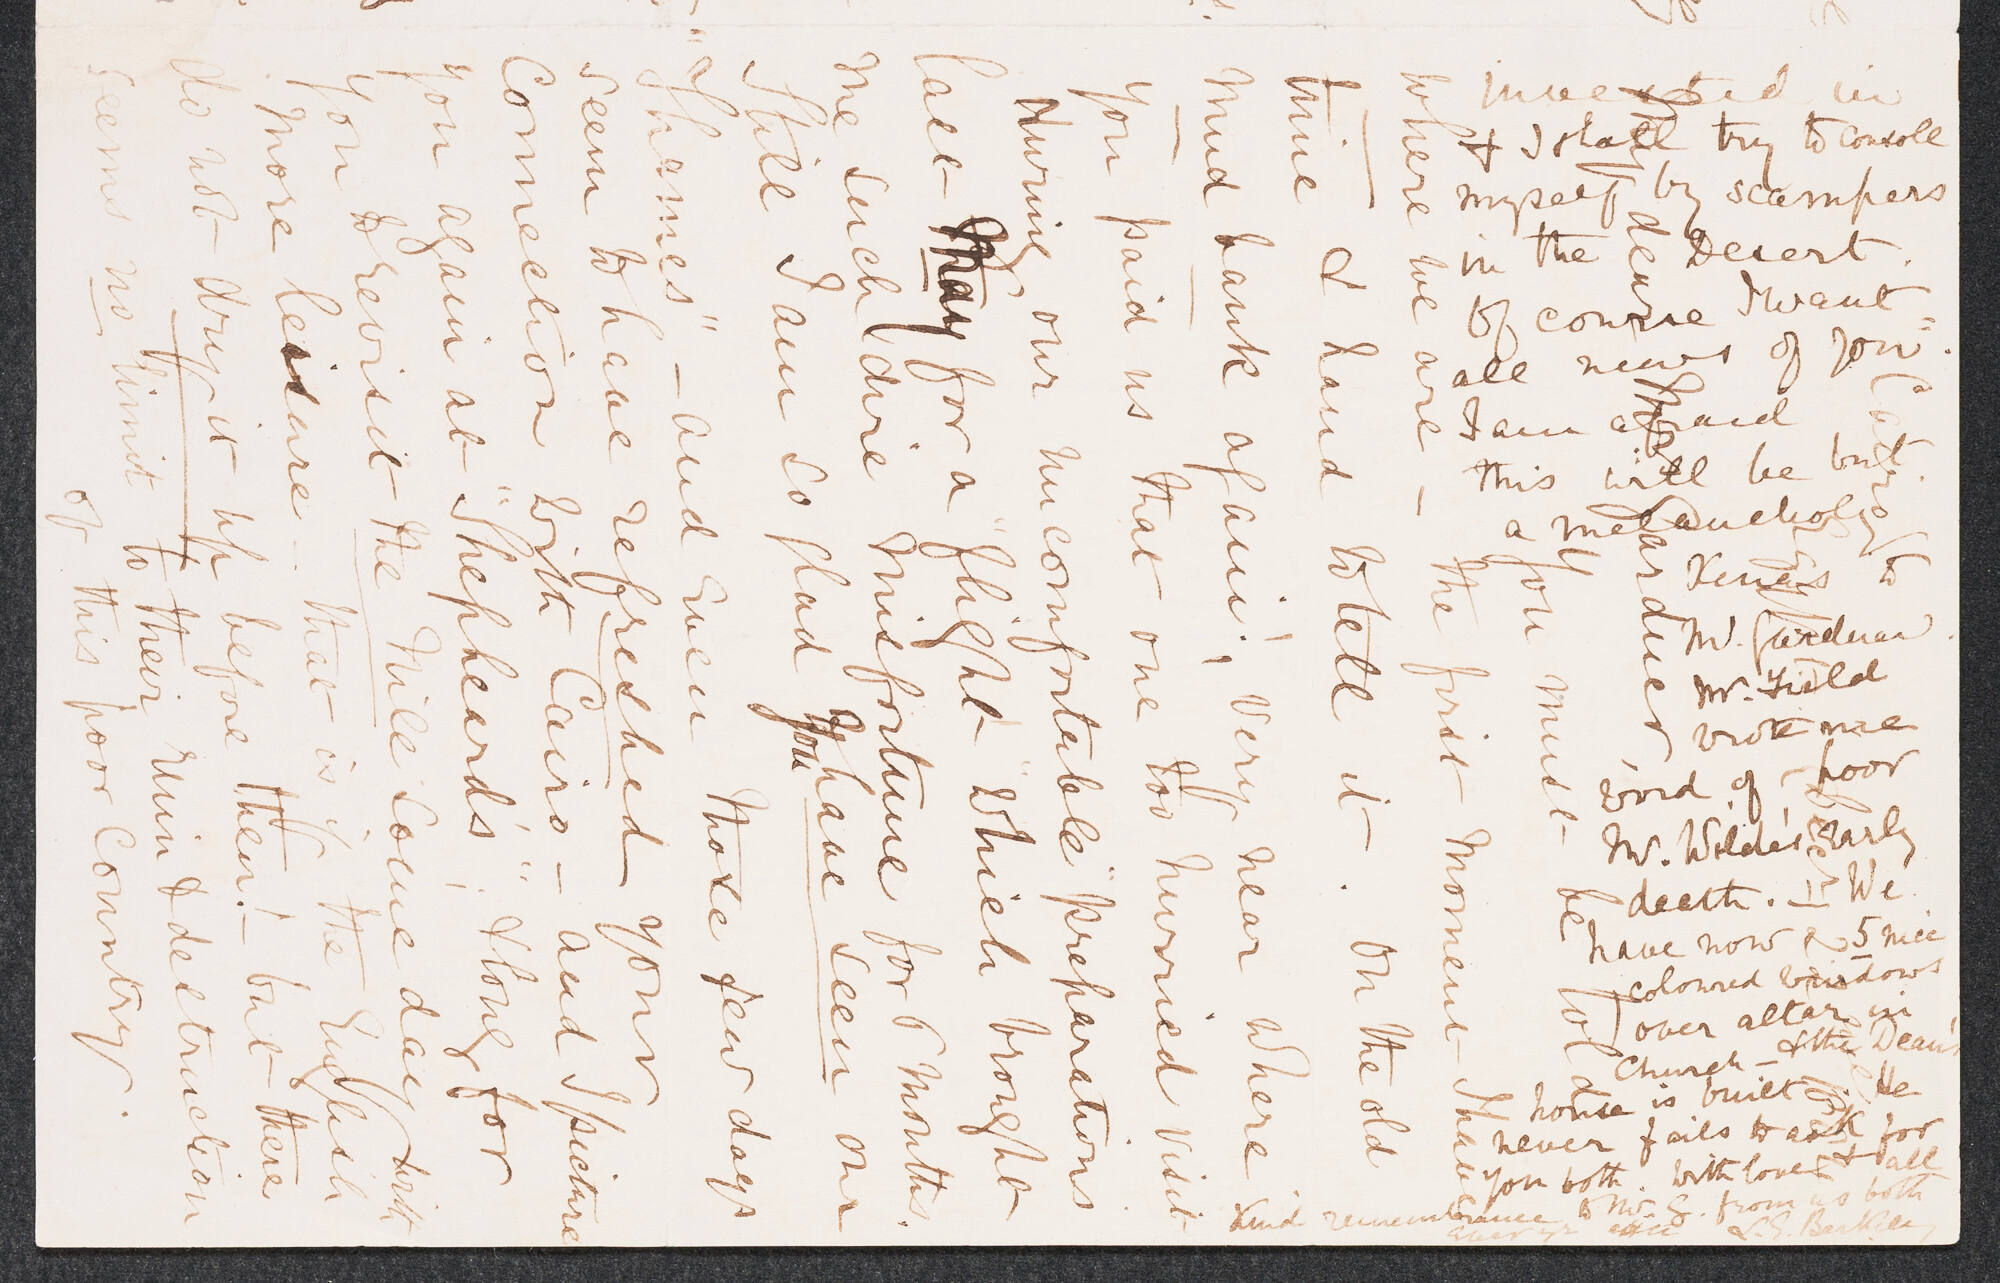 My dear Mrs Gardner, You must be told
where we are - the first moment I have
time & hand to tell it. On the old
mud bank again!, very near where
you paid us that one too hurried visit
during our uncomfortable "preparations
last May for a "flight" which brought
me such dire misfortune for 6 months.
Still I am so glad you have seen our
"Thames" - and even those few days
seem to have refreshed your
connection with Cairo - and I picture
you again at "Shepheard's", & long for
you to revisit the Nile some day with
more leisure - that is, if the English
do not dry it up before then! - but there
seems no limit to their ruin & destruction
of this poor country.
invested in
& I shall try to console
myself by scampers
in the Desert.
Of course I want
all news of you.
I am afraid
this will be but
a melancholy
Xmas to
Mr. Gardner.
Mr. Field
wrote me
word of poor
Mr. Wilde's early
death. - We
have now 5 nice
coloured windows
over altar in
Church - & the Dean's
house is built He
never fails to ask for
you both. With love & all
kind remembrance to Mr. G. from us both